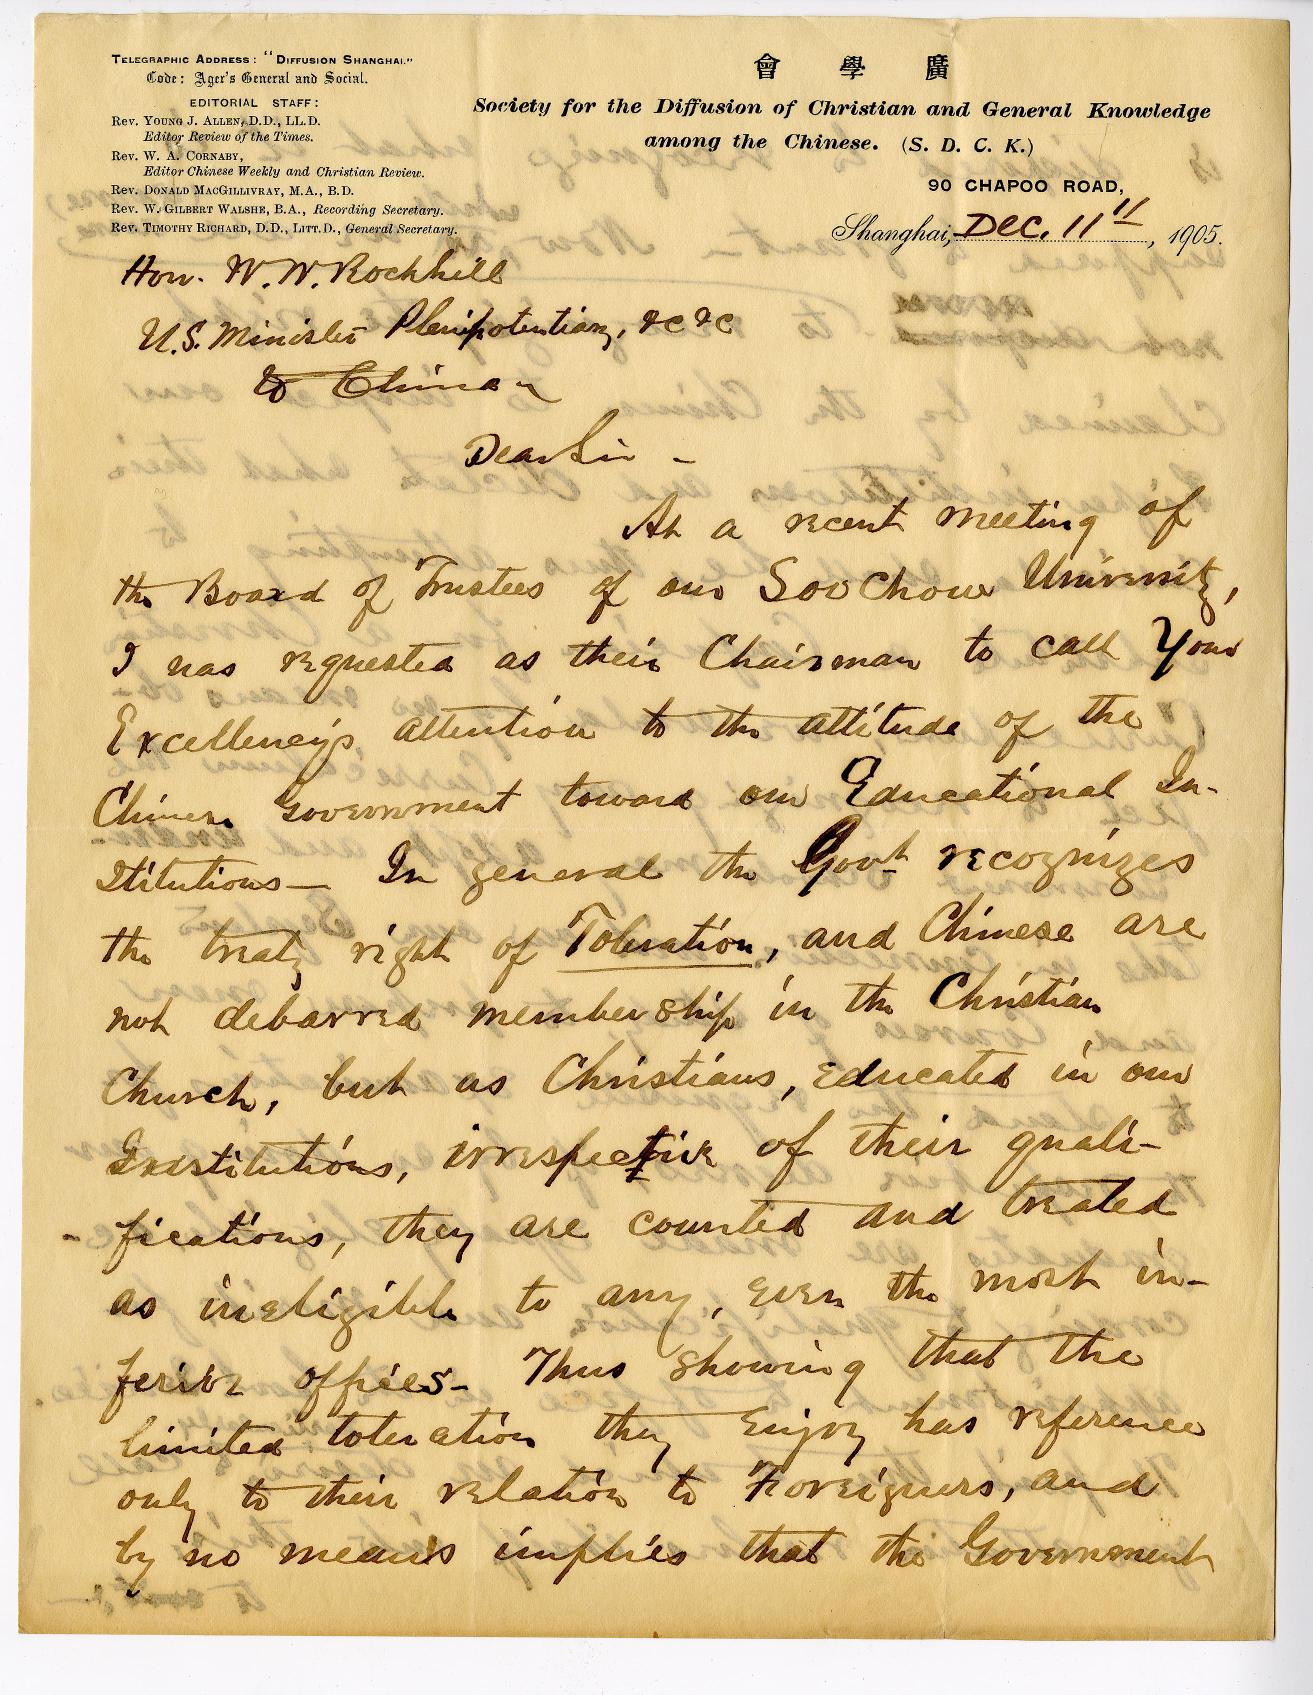 TELEGRAPHIC ADDRESS: "DIFFUSION SHANGHAI."
Code: Ager's General and Social.
EDITORIAL STAFF:
REV. YOUNG J. ALLEN, D.D., LL.D.
Editor Review of the Times.
REV. W. A. CORNABY,
Editor Chinese Weekly and Christian Review.
REV. DONALD MACGILLIVRAY, M.A., B.D.
REV. W. GILBERT WALSHE, B.A., Recording Secretary.
REV. TIMOTHY RICHARD, D.D., LITT.D., General Secretary.
會 學 廣
Society for the Diffusion of Christian and General Knowledge
among the Chinese. (S. D. C. K.)
90 CHAPOO ROAD,
Shanghai, Dec. 11", 1905.
Hon. W. W. Rockhill
U.S. Minister Plenipotentiary, &c &c
to China
Dear Sir –
At a recent meeting of
the Board of Trustees of our Soochow University,
I was requested as their Chairman to call Your
Excellency's attention to the attitude of the
Chinese Government toward our Educational In-
stitutions— In general the Govt recognizes
the treaty right of Toleration, and Chinese are
not debarred membership in the Christian
Church, but as Christians, educated in our
Institutions, irrespective of their quali-
fications, they are counted and treated
as ineligible to any, even the most in-
ferior offices– Thus showing that the
limited toleration they enjoy has reference
only to their relation to Foreigners, and
by no means implies that the Government